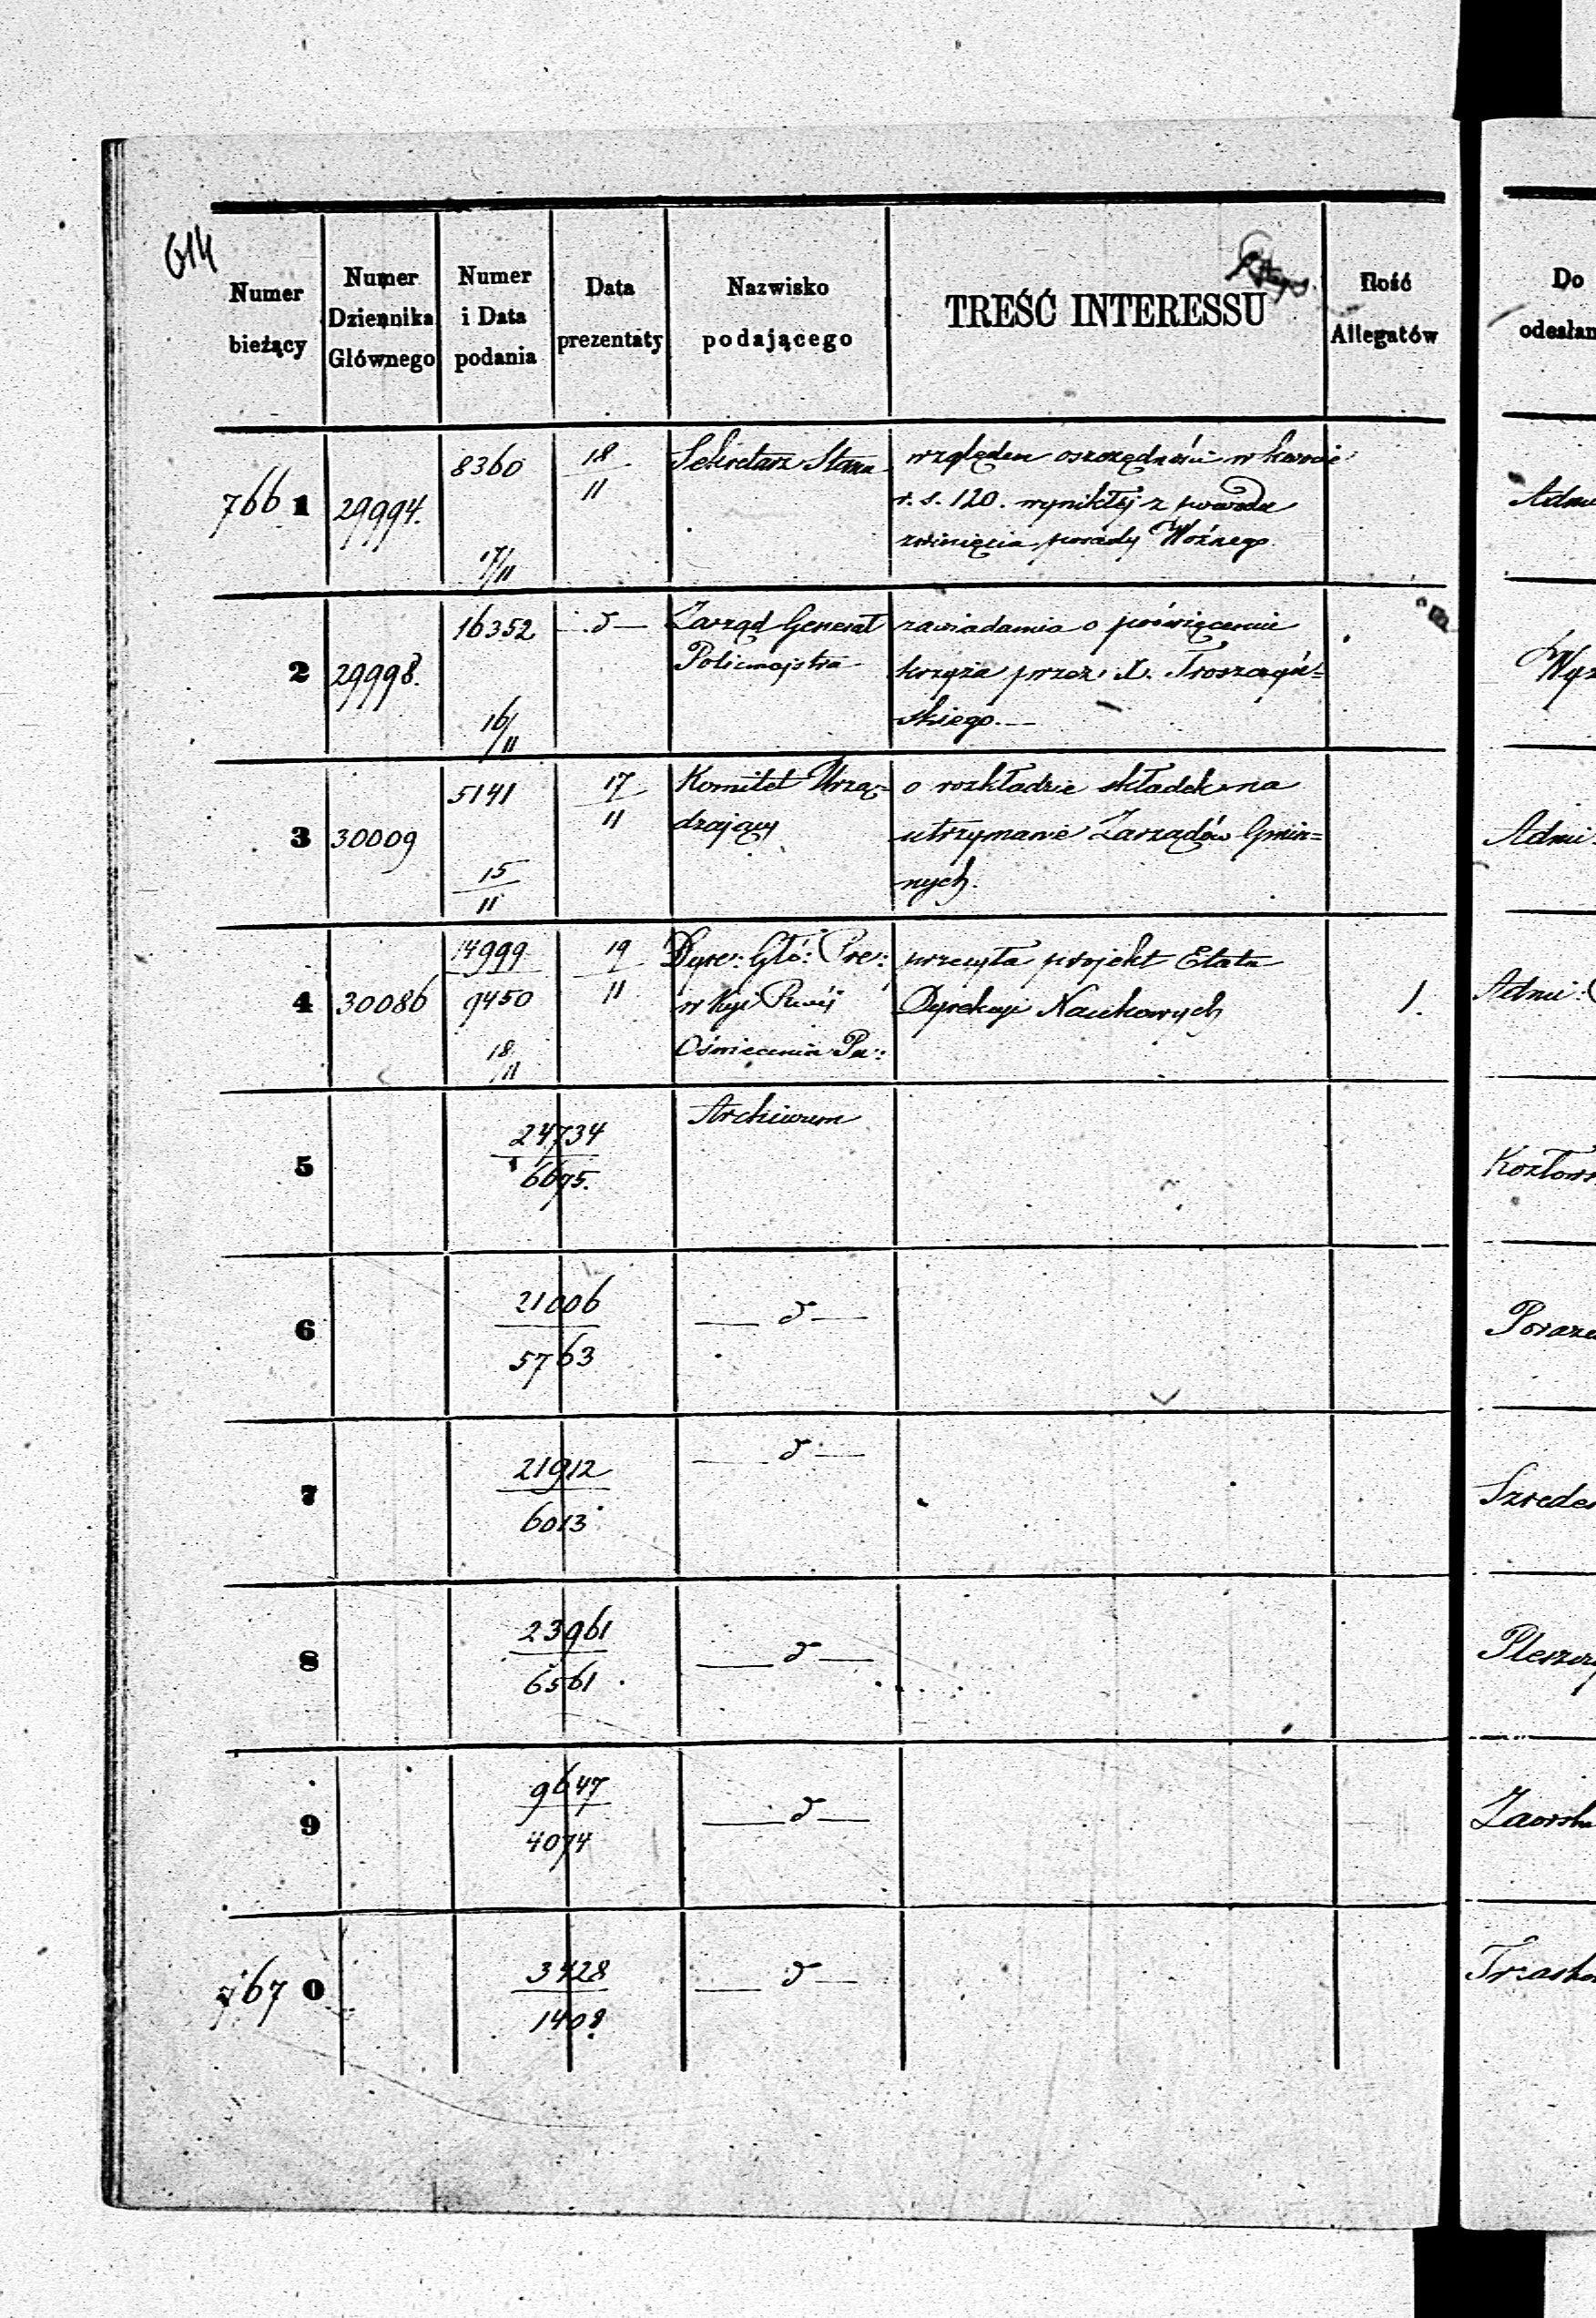 614
Numer bieżący
Numer Dziennika Głównego
Numer i Data podania
Data prezentaty
Nazwisko podającego
TREŚĆ INTERESSU
Ilość Allegatów
Do odesłan
7661 29994. 8360 17/11 18/11 Sekretarz Stanu
względem oszczędności w kwocie
r. s. 120. wynikłej z powodu
zwinięcia posady Woźnego.
Adm
2 29998. 16352 16/11 — d — Zarząd Generał
Policmajstra
zawiadamia o poświęcenie
krzyża przez X.
skiego. —
Wyz
3 30009 5141 15/11 17/11 Komitet Urzą=
dzający
o rozkładzie składek na
utrzymanie Zarządów Gmin=
nych.
Admi
4 30086 14999/9450 18/11 19/11 Dyre: Głó: Pre:
w Kyi
Oświecenia Pu:
przesyła projekt Etatu
Dyrekcyi Naukowych
1.
Admi:
5 24734/6695. Archiwum
Kozłows
6 21006/5763 — d —
7 21912/6013 — d —
Szrede
8 23961/6561 — d —
9 9647/4074 — d —
Zaorsk
7670 3428/1408. — d —